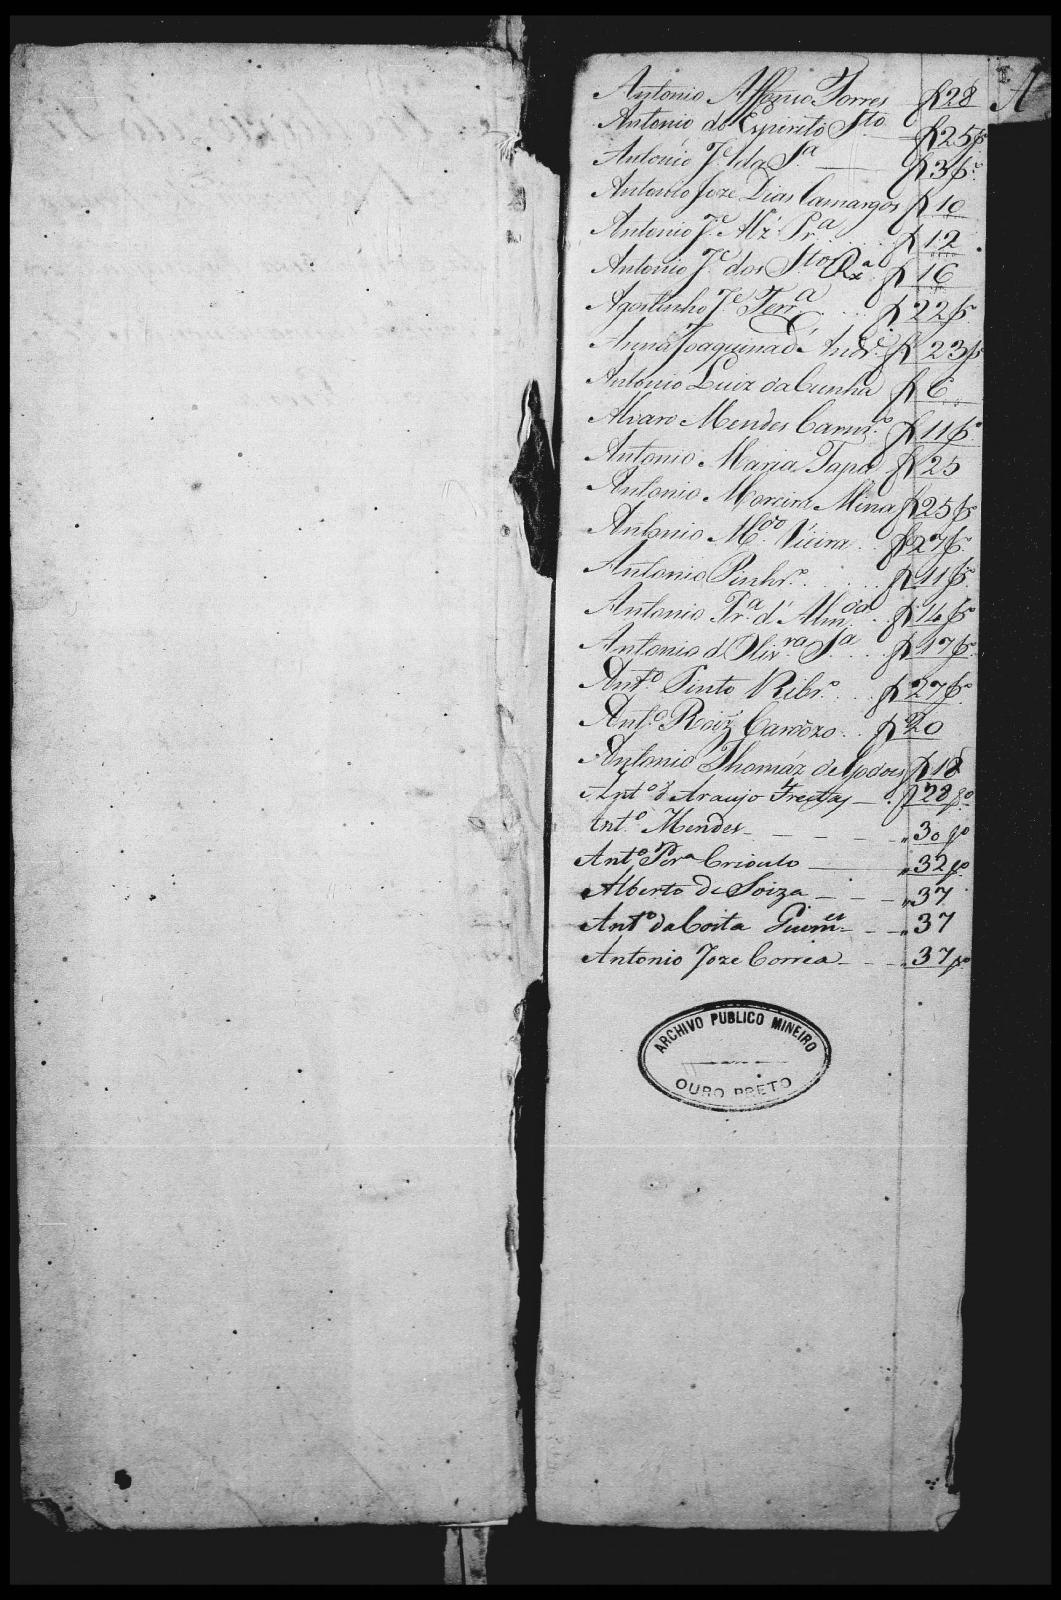 A
Antonio Affonço Torres f 28
Antonio do Espirito Sto f 25 so
Antonio Je da Sa f 3 so
Antonio Joze Dias Camargos f 10
Antonio Je Alz' Pra f 12
Antonio Je dos Stos f 16
Agostinho Je Ferra f 22 so
Anna Joaquina d' Andre f 23 so
Antonio Luiz da Cunha f 6
Alvaro Mendes Carnro f 11 so
Antonio Maria Tapa f 25
Antonio Moreira Mina f 25 so
Antonio Mdo Vieira f 27 so
Antonio Pinhro f 11 so
Antonio Pra d' Almda f 14 so
Antonio d' Olivra Sa f 17 so
Anto Pinto Ribro f 27 so
Anto Roiz Cardozo f 20
Antonio Thomáz de Godoes f 18
Anto de Araujo Freitas f 28 so
Anto Mendes " 30 so
Anto Pera Crioulo " 32 so
Alberto de Soiza " 37
Anto da Costa Guimes " 37
Antonio Joze Correa " 37 so
ARCHIVO PUBLICO MINEIRO
OURO PRETO